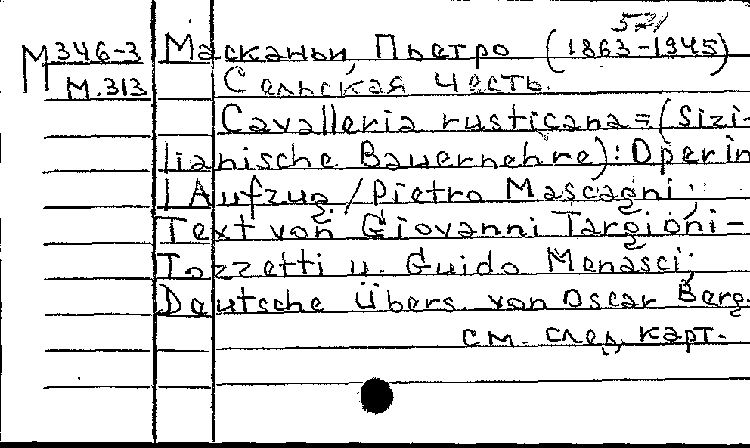 571
М 346-3 Масканьи, Пьетро (1863-1945)
М.313 Сельская честь.
Cavalleria rusticana=(Sizi-
lianische Bauernehre): Oper in
1 Aufzug/Pietro Mascagni;
Text von Giovanni Targioni-
Tozzetti u. Guido Menasci;
Deutsche Übers. von Oscar Berg.
см. след. карт.